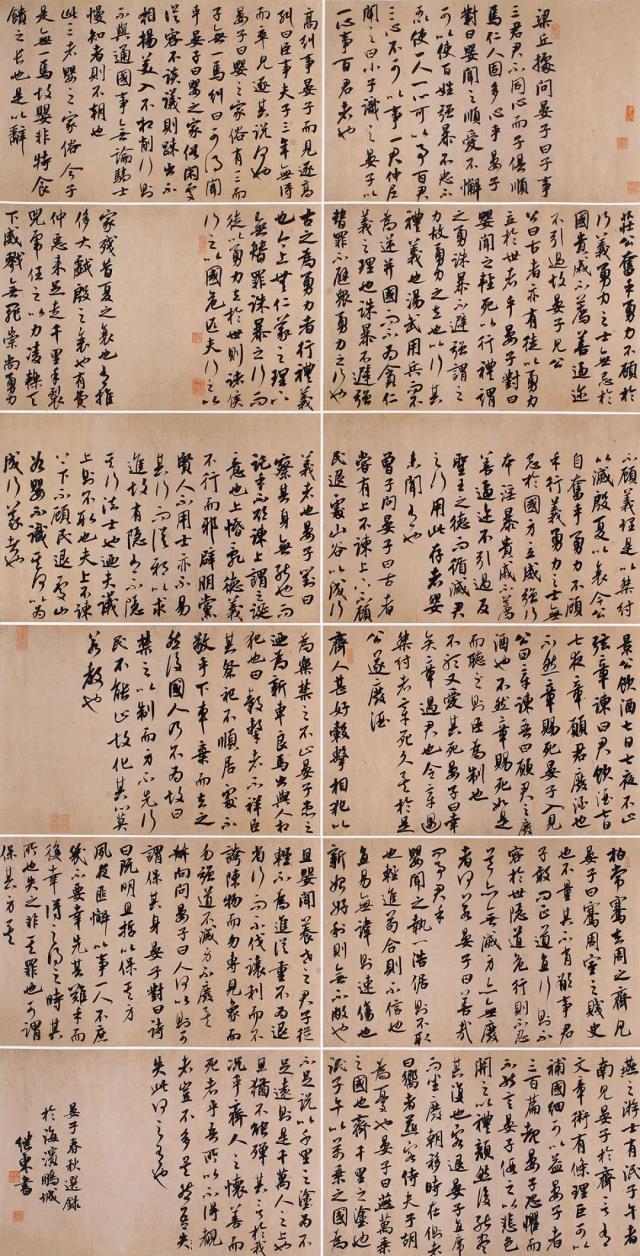 梁丘據問晏子曰子事
三君君不同心而子俱順
焉仁人固多心乎晏子
對曰嬰聞之順愛不懈
可以使百姓强暴不忠不
可使一人一心可以事百君
三心不可以事一君仲尼
聞之曰小子識之晏子以
一心事百君者也
高糾事晏子而見逐高
糾曰臣事夫子三年無得
而卒見逐其說何也
晏子曰嬰之家俗有三而
子無一焉糾曰可得聞
乎晏子曰嬰之家俗閒處
從容不談議則疏出不
相揚美入不相削行則
不與通國事無論驕士
慢知者則不朝也
此三者嬰之家俗今子
是無一焉故嬰非特食
饋之長也是以辭
莊公奮乎勇力不顧於
行義勇力之士無忌於
國貴戚不薦善逼迩
不引過故晏子見公
公曰古者亦有徒以勇力
立於世者乎晏子對曰
嬰聞之輕死以行禮謂
之勇誅暴不避强謂之
力故勇力之立也以行其
禮義也湯武用兵而不
為逆并國而不為貪仁
義之理也誅暴不避强
替罪不避眾勇力之行也
古之為勇力者行禮義
也今上無仁義之理下
無替罪誅暴之行而
徒以勇力立於世則諸侯
行之以國危匹夫行之以
家殘昔夏之衰也有推
侈大戲殷之衰也有費
仲惡來足走千里手裂
兕虎任之以力凌轢天
下威戮無罪崇尚勇力
不顧義理是以桀紂
以滅殷夏以衰今公
自奮乎勇力不顧
乎行義勇力之士無
忌於國身立威强行
本淫暴貴戚不薦
善逼迩不引過反
聖王之德而循滅君
之行用此存者嬰
未聞有也
曾子問晏子曰古者
嘗有上不諫上下不顧
民退處山谷以成行
義者也晏子對曰
察其身無能也而
託乎不欲諫上謂之誕
意也上惛亂德義
不行而邪辟朋黨
賢人不用士亦不易
其行而從邪以求
進故有隱有不隱
其行法士也迺夫議
上則不取也夫上不諫
上下不顧民退處山
谷嬰不識其何以為
成行義者也
景公飲酒七日七夜不止
弦章諫曰君飲酒七日
七夜章願君廢酒也
不然章賜死晏子入見
公曰章諫吾曰願君之廢
酒也不然章賜死如是
而聽之則臣為制也
不聽又愛其死晏子曰幸
矣章遇君也令章遇
桀紂者章死久矣於是
公遂廢酒
齊人甚好轂擊相犯以
為樂禁之不止晏子患之
迺為新車良馬出與人相
犯也曰轂擊者不祥臣
其祭祀不順居處不
敬乎下車棄而去之
然後國人乃不為故曰
禁之以制而身不先行
民不能止故化其心莫
若教也
柏常騫去周之齊見
晏子曰騫周室之賤史
也不量其不肖願事君
子敢問正道直行則不
容於世隱道危行則不忍
道亦無滅身亦無廢
者何若晏子曰善哉
問事君乎
嬰聞之執一浩倨則不取
也輕進苟合則不信也
直易無諱則速傷也
新始好利則無不敝也
且嬰聞養世之君子從
輕不為進從重不為退
省行而不伐讓利而不
誇陳物而勿專見象而
勿强道不滅身不廢矣
叔向問晏子曰人何以則可
謂保其身晏子對曰詩
曰既明且哲以保其身
夙夜匪懈以事一人不庶
幾不要幸先其難乎而
後幸得之得之時其
所也失之非其罪也可謂
保其身矣
燕之游士有泯子午者
南見晏子於齊言有
文章術有條理臣可以
補國細可以益晏子者
三百篇睹晏子恐懼而
不能言晏子假之以悲色
開之以禮顏然後能盡
其復也客退晏子直席
而坐廢朝移時在側者
曰嚮者燕客侍夫子胡
為憂也晏子曰燕萬乘
之國也齊千里之塗也
泯子午以萬乘之國為
不足說以千里之塗為不
足遠則是千萬人之上也
且猶不能殫其言於我
況乎齊人之懷善而
死者乎吾所以不得觀
者豈不多矣然吾失
失此何之有也
晏子春秋選錄
於海濱鵬城
继東書